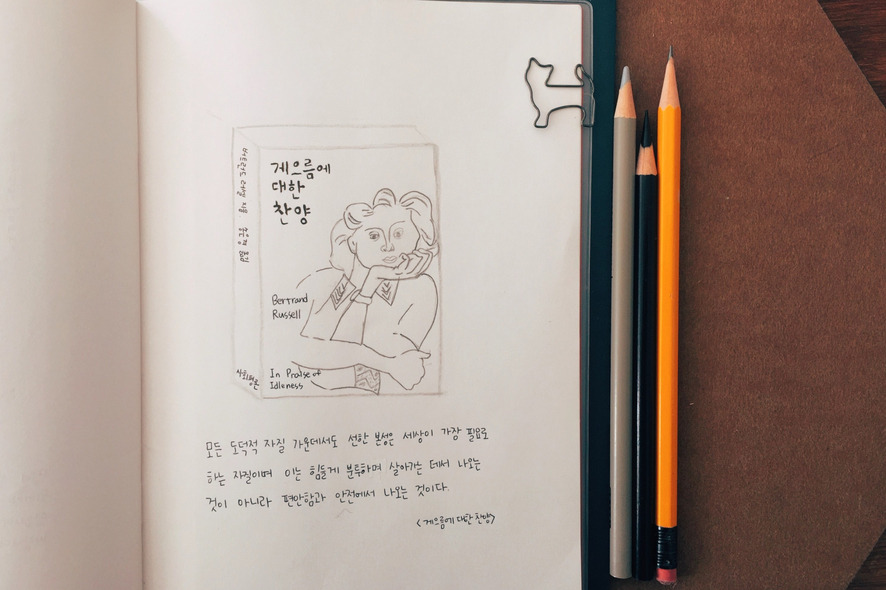 버트런드 러셀 지음 송은경 옮김
게으름에
대한
찬양
Bertrand
Russell
사회평론
In Praise of
Idleness
모든 도덕적 자질 가운데서도 선한 본성은 세상이 가장 필요로
하는 자질이며 이는 힘들게 분투하며 살아가는 데서 나오는
것이 아니라 편안함과 안전에서 나오는 것이다.
<게으름에 대한 찬양>